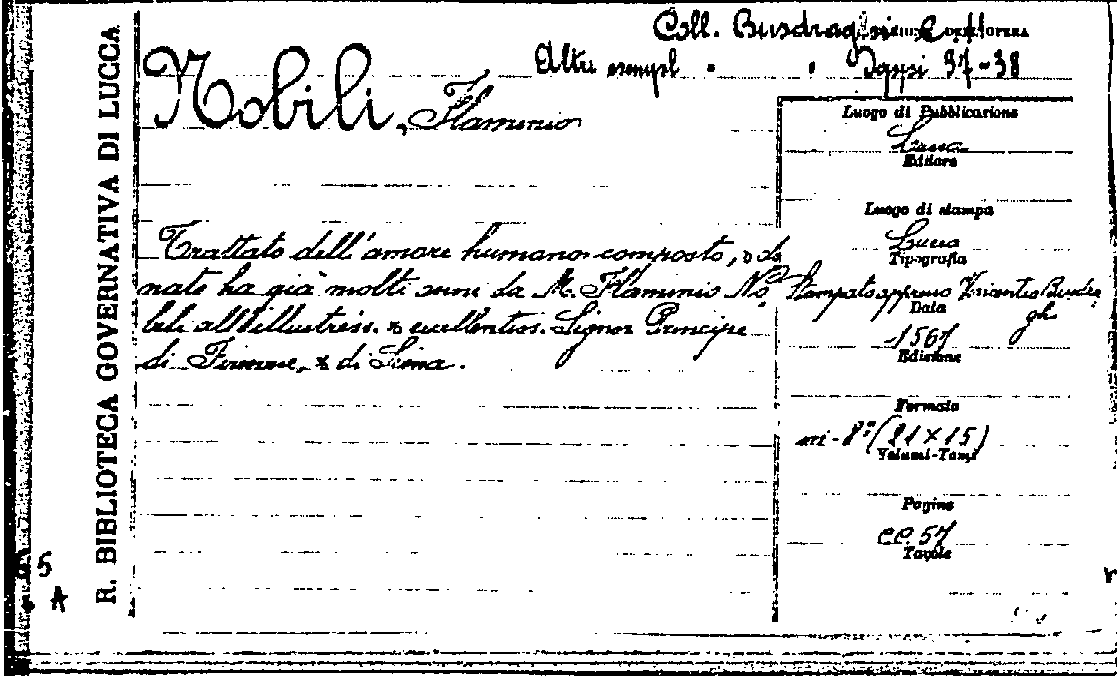 Coll. Busdraghi
DELL'OPERA
Altri esempl " " 37-38
Nobili, Flaminio
R. BIBLIOTECA GOVERNATIVA DI LUCCA
Trattato dell'amore humano composto, & do
nato ha già molti anni da M. Flaminio No
bili all'illustriss. & eccellentiss. Signor Principe
di Firenze, & di Siena.
Luogo di Pubblicazione
Lucca
Editore
Luogo di stampa
Lucca
Tipografia
Stampato appresso Vincentio Busdra
ghi
Data
1567
Edizione
Formato
in-8° (21 X 15)
Volumi-Tomi
Pagine
cc. 57
Tavole
5
A